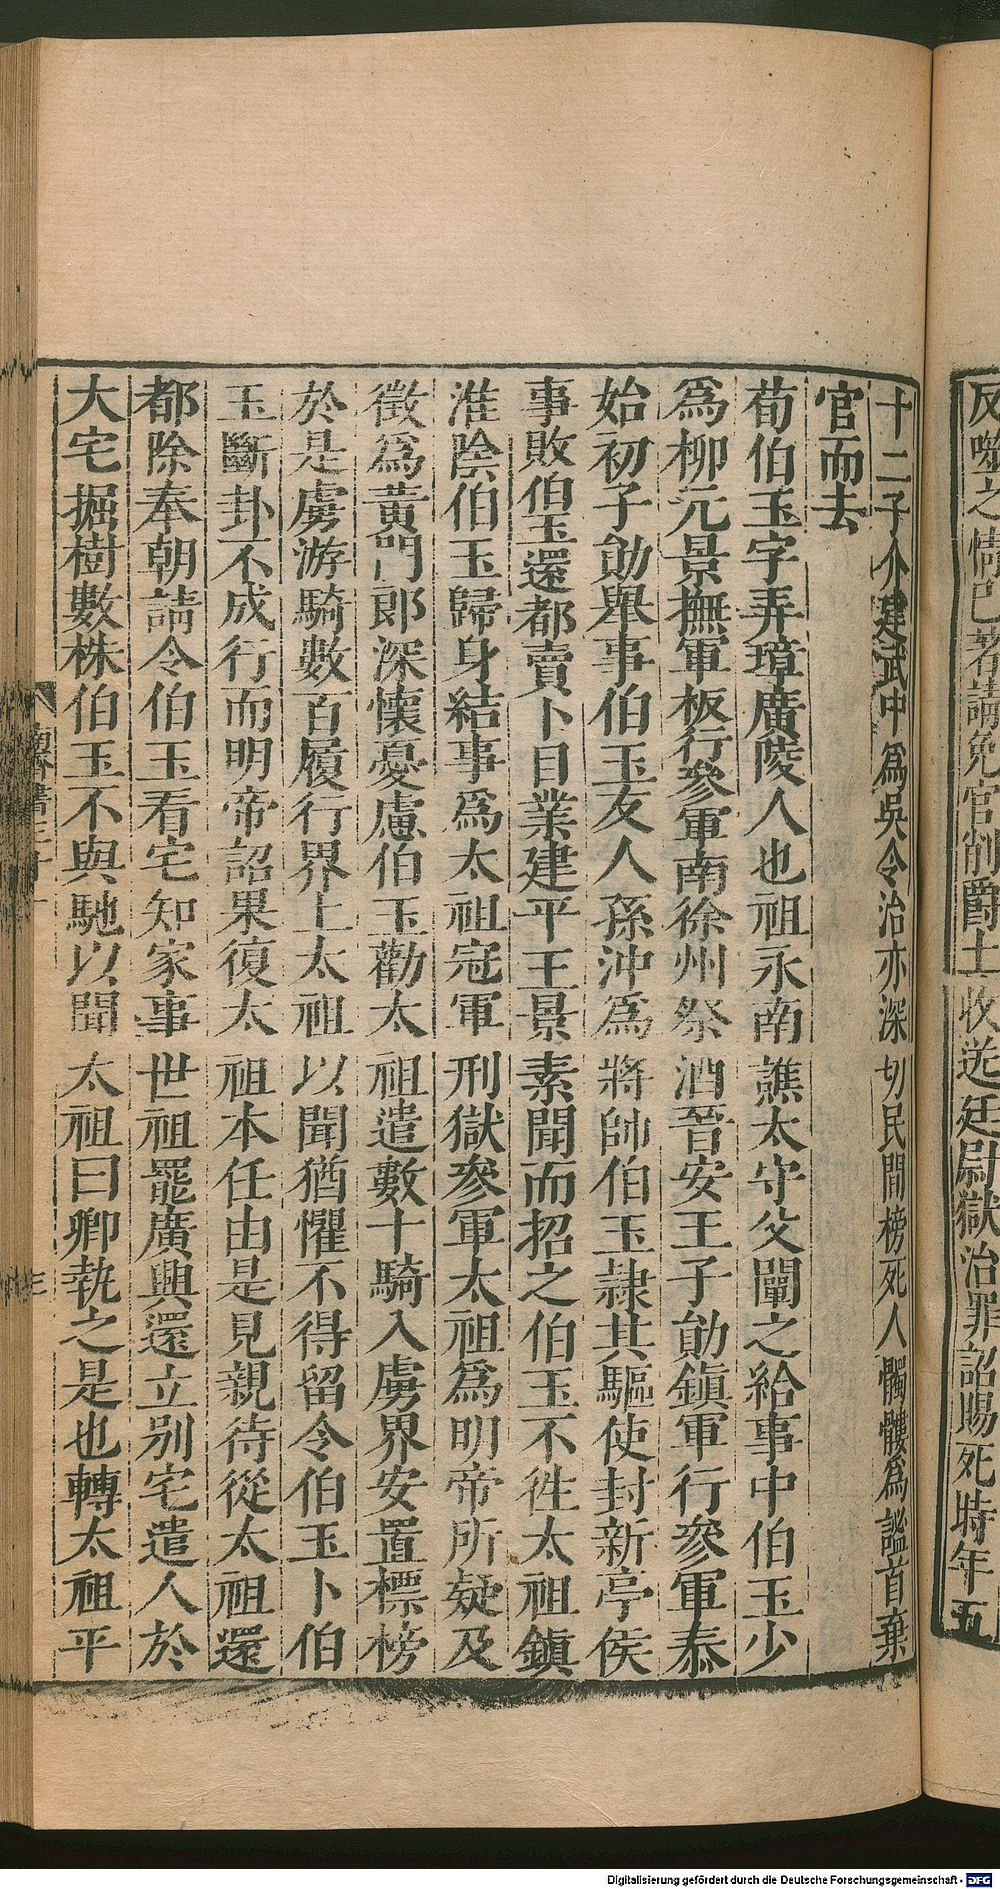 反噬之情巴著請免官削爵土收送廷尉獄治罪詔賜死時年五
十二子介建武中爲吳令治亦深切民間榜死人髑髏爲謐首棄
官而去
荀伯玉字弄璋廣陵人也祖永南譙太守父闡之給事中伯玉少
爲柳元景撫軍板行參軍南徐州祭酒晉安王子勛鎮軍行參軍泰
始初子勛舉事伯玉友人孫沖爲將帥伯玉隷其驅使封新亭侯
事敗伯玉還都賣卜自業建平王景素聞而招之伯玉不徃太祖鎮
淮陰伯玉歸身結事爲太祖冠軍刑獄參軍太祖爲明帝所疑及
徵爲黃門郎深懷憂慮伯玉勸太祖遣數十騎入虜界安置標榜
於是虜游騎數百履行界上太祖以聞猶懼不得留令伯玉卜伯
玉斷卦不成行而明帝詔果復太祖本任由是見親待從太祖還
都除奉朝請令伯玉看宅知家事世祖罷廣興還立別宅遣人於
大宅掘樹數株伯玉不與馳以聞太祖曰卿執之是也轉太祖平
Digitalisierung gefördert durch die Deutsche Forschungsgemeinschaft - DFG